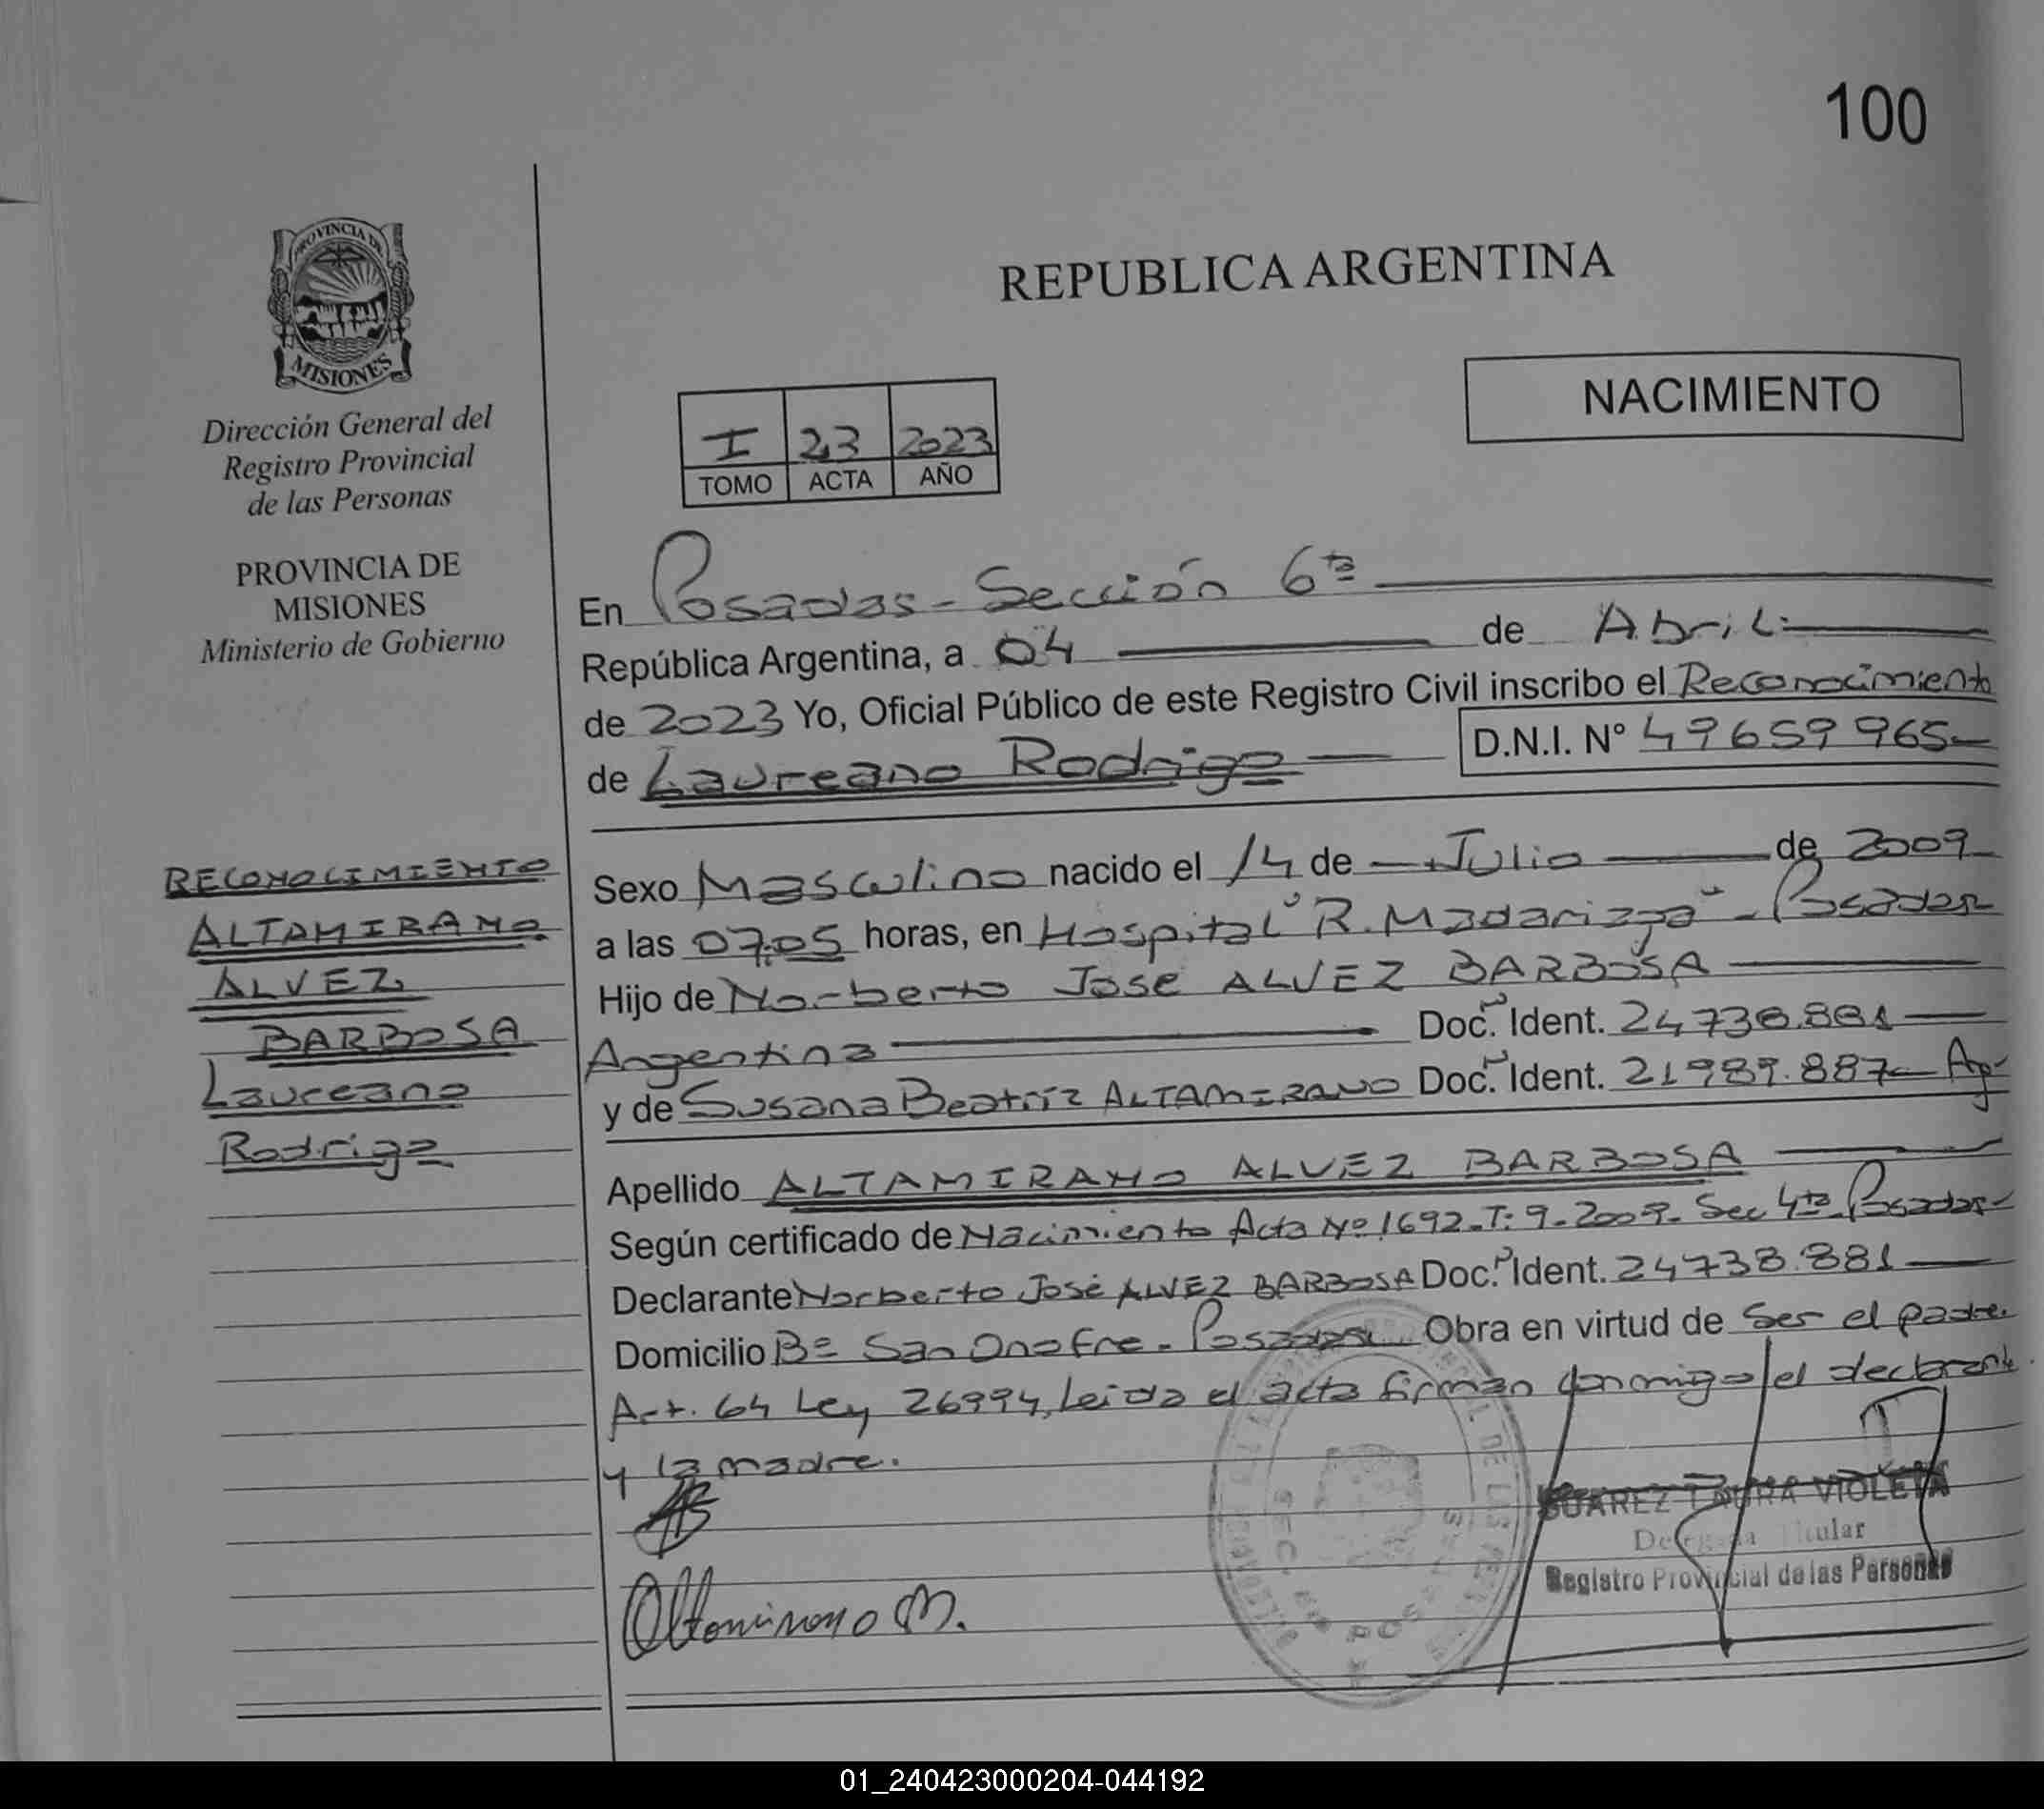 100
PROVINCIA DE
MISIONES
Dirección General del
Registro Provincial
de las Personas
PROVINCIA DE
MISIONES
Ministerio de Gobierno
REPUBLICA ARGENTINA
NACIMIENTO
I 23 2023
TOMO ACTA AÑO
En Posadas - Sección 6ta
República Argentina, a 04 de Abril
de 2023 Yo, Oficial Público de este Registro Civil inscribo el Reconocimiento
de Laureano Rodrigo D.N.I. N° 49659965
Sexo Masculino nacido el 14 de Julio de 2009
a las 07:05 horas, en Hospital "R. Madariaga" - Posadas
Hijo de Norberto José ALVEZ BARBOSA
Argentina Doc. Ident. 24738.881
y de Susana Beatríz ALTAMIRANO Doc. Ident. 21989.887 Ar
Apellido ALTAMIRANO ALVEZ BARBOSA
Según certificado de Nacimiento Acta Nº 1692-T:9-2009- Sec 4ta Posadas
Declarante Norberto José ALVEZ BARBOSA Doc. Ident. 24738.881
Domicilio Bº San Onofre - Posadas Obra en virtud de Ser el padre.
Art. 64 Ley 26994, Leida el acta firman conmigo el declarante
y la madre.
RECONOCIMIENTO
ALTAMIRANO
ALVEZ
BARBOSA
Laureano
Rodrigo
Altamirano M.
SUAREZ LAURA VIOLETA
Delegada Titular
Registro Provincial de las Personas
01_240423000204-044192